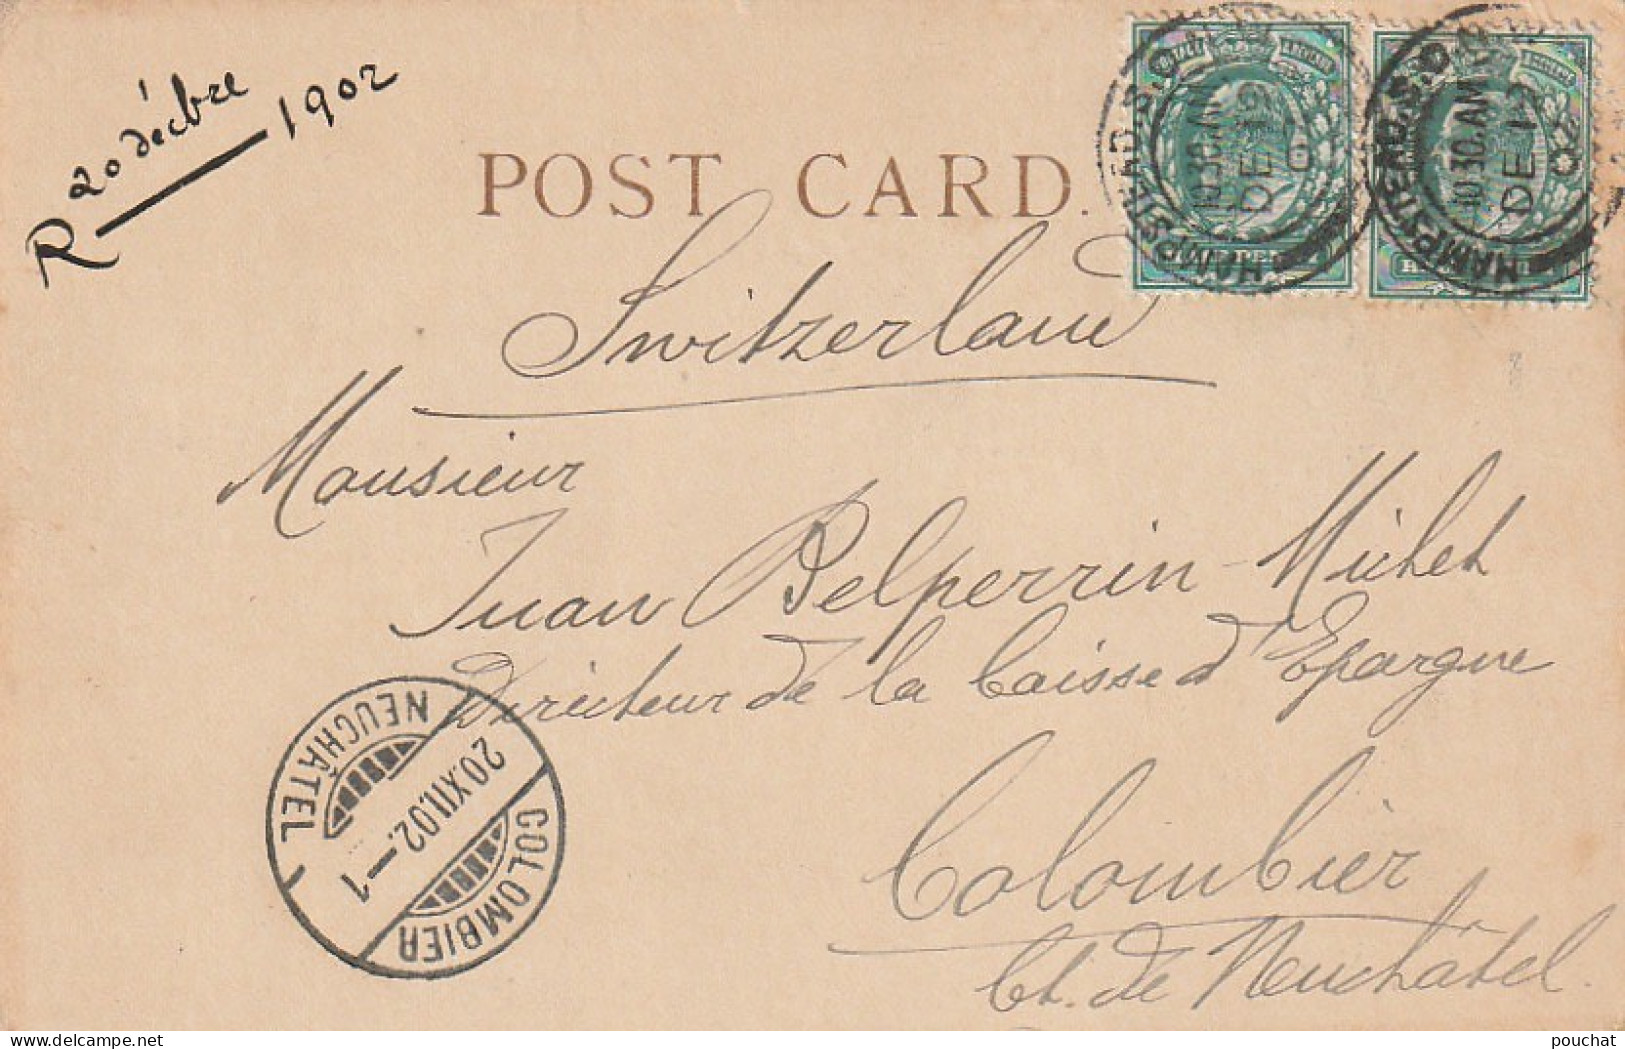 R 20 décbre 1902
POST CARD.
HAMPSTEAD.S.O
10 30.AM
DE 19
02
HAMPSTEAD.S.O
10 30.AM
DE 19
02
Switzerland
Monsieur
Juan Belperrin-Michet
Directeur de la Caisse d'Epargne
Colombier
Ct. de Neuchâtel.
NEUCHÂTEL
20.XII.02.-1
COLOMBIER
pouchat